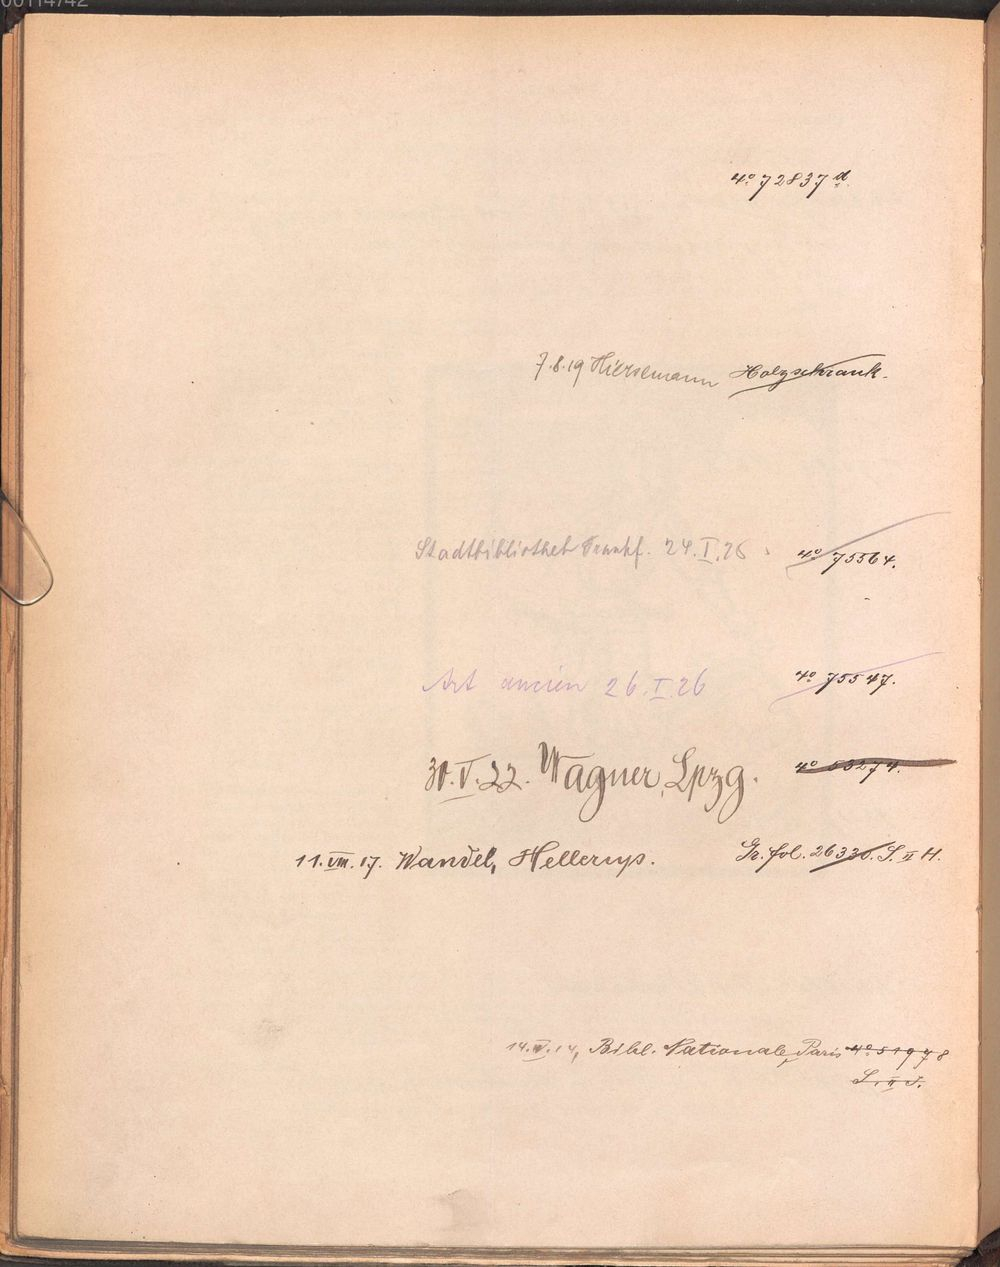 00114742
4° 72837 d.
7.8.19 Hiersemann Holzschrank.
Stadtbibliothek Frankf. 24.I.26 4° 75564.
Art ancien 26.I.26 4° 75547.
30.V.22. Wagner, Lpzg. 4° 53274.
11.VIII.17. Wandel, Hellerup. Gr. fol. 26330. S. II H.
14.IV.14, Bibl. Nationale, Paris 4° 51978
S. II J.